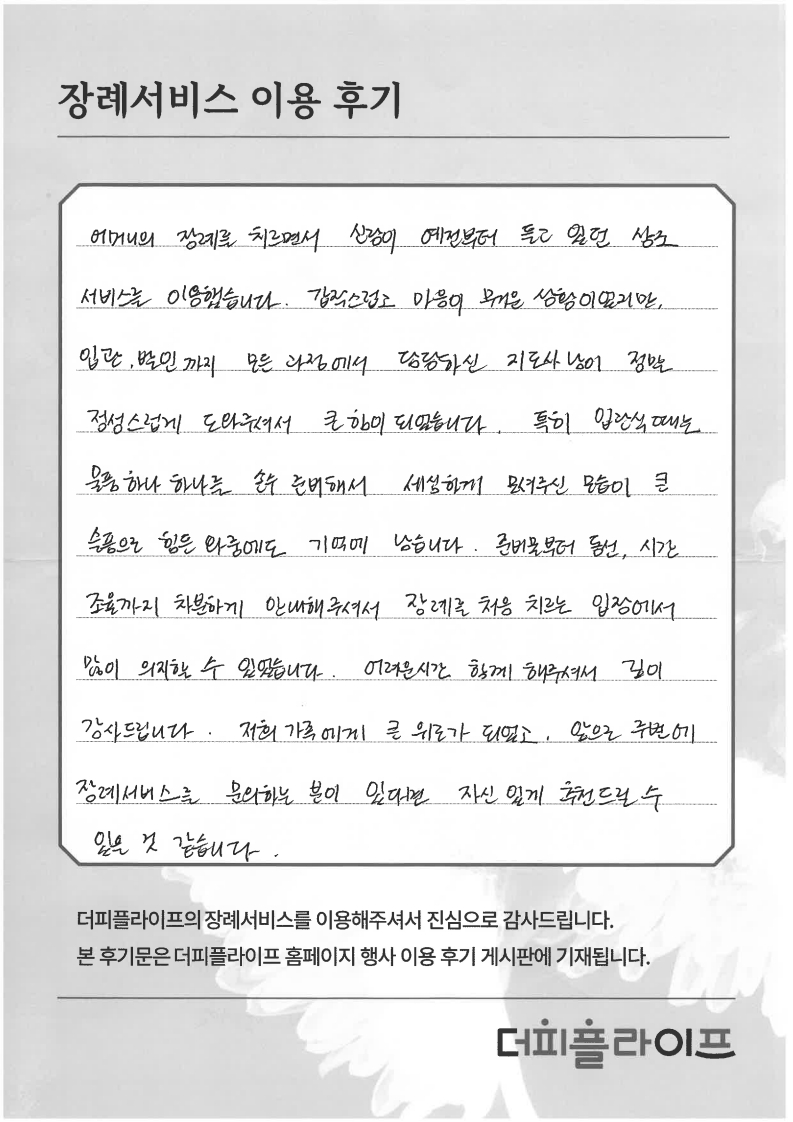 장례서비스 이용 후기
어머니의 장례를 치르면서 신랑이 예전부터 들고 있던 상조
서비스를 이용했습니다. 갑작스럽고 마음이 무거운 상황이였지만,
입관, 발인까지 모든 과정에서 담당하신 지도사님이 정말
정성스럽게 도와주셔서 큰 힘이 되었습니다. 특히 입관식 때는
물품 하나 하나를 손수 준비해서 세심하게 모셔주신 모습이 큰
슬픔으로 힘든 와중에도 기억에 남습니다. 준비물부터 동선, 시간
조율까지 차분하게 안내해주셔서 장례를 처음 치르는 입장에서
많이 의지할 수 있었습니다. 어려운시간 함께 해주셔서 깊이
감사드립니다. 저희 가족에게 큰 위로가 되었고, 앞으로 주변에
장례서비스를 문의하는 분이 있다면 자신 있게 추천드릴 수
있을 것 같습니다.
더피플라이프의 장례서비스를 이용해주셔서 진심으로 감사드립니다.
본 후기문은 더피플라이프 홈페이지 행사 이용 후기 게시판에 기재됩니다.
더피플라이프